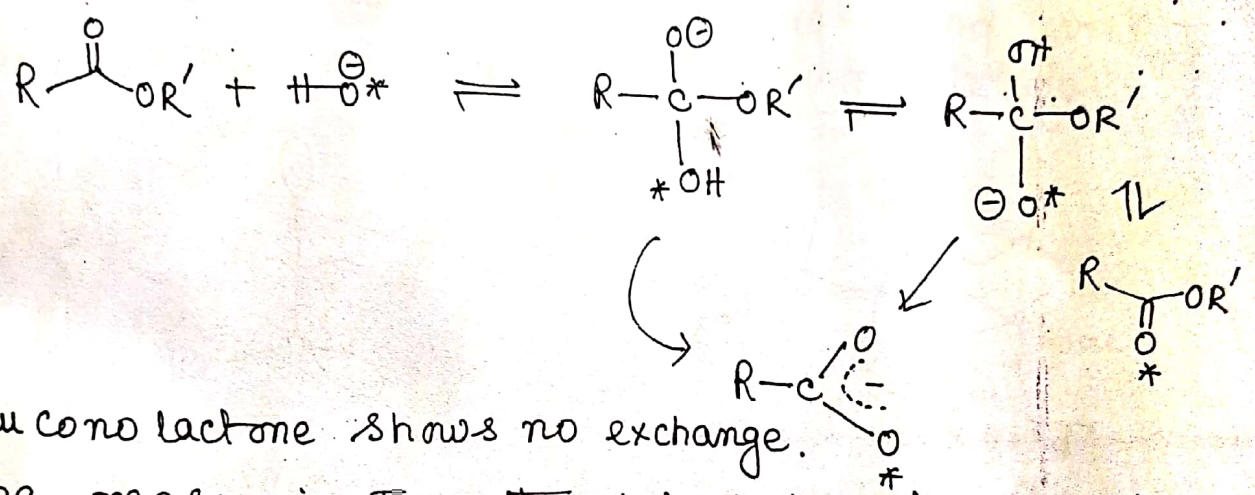 R O OR' + H-O⊖* ⇌ R-C-OR' O⊖ *OH ⇌ R-C-OR' OH ⊖O* ⇌
R OR' O *
R-C O - O *
cono lactone shows no exchange.